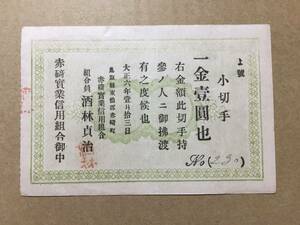 よ號
小切手
一金壹圓也
右金額此切手持
參ノ人ニ御拂渡
有之度候也
大正六年壹月拾三日
鳥取縣東伯郡赤碕町
赤碕實業信用組合
組合員 酒林貞治
赤碕實業信用組合御中
No(230)